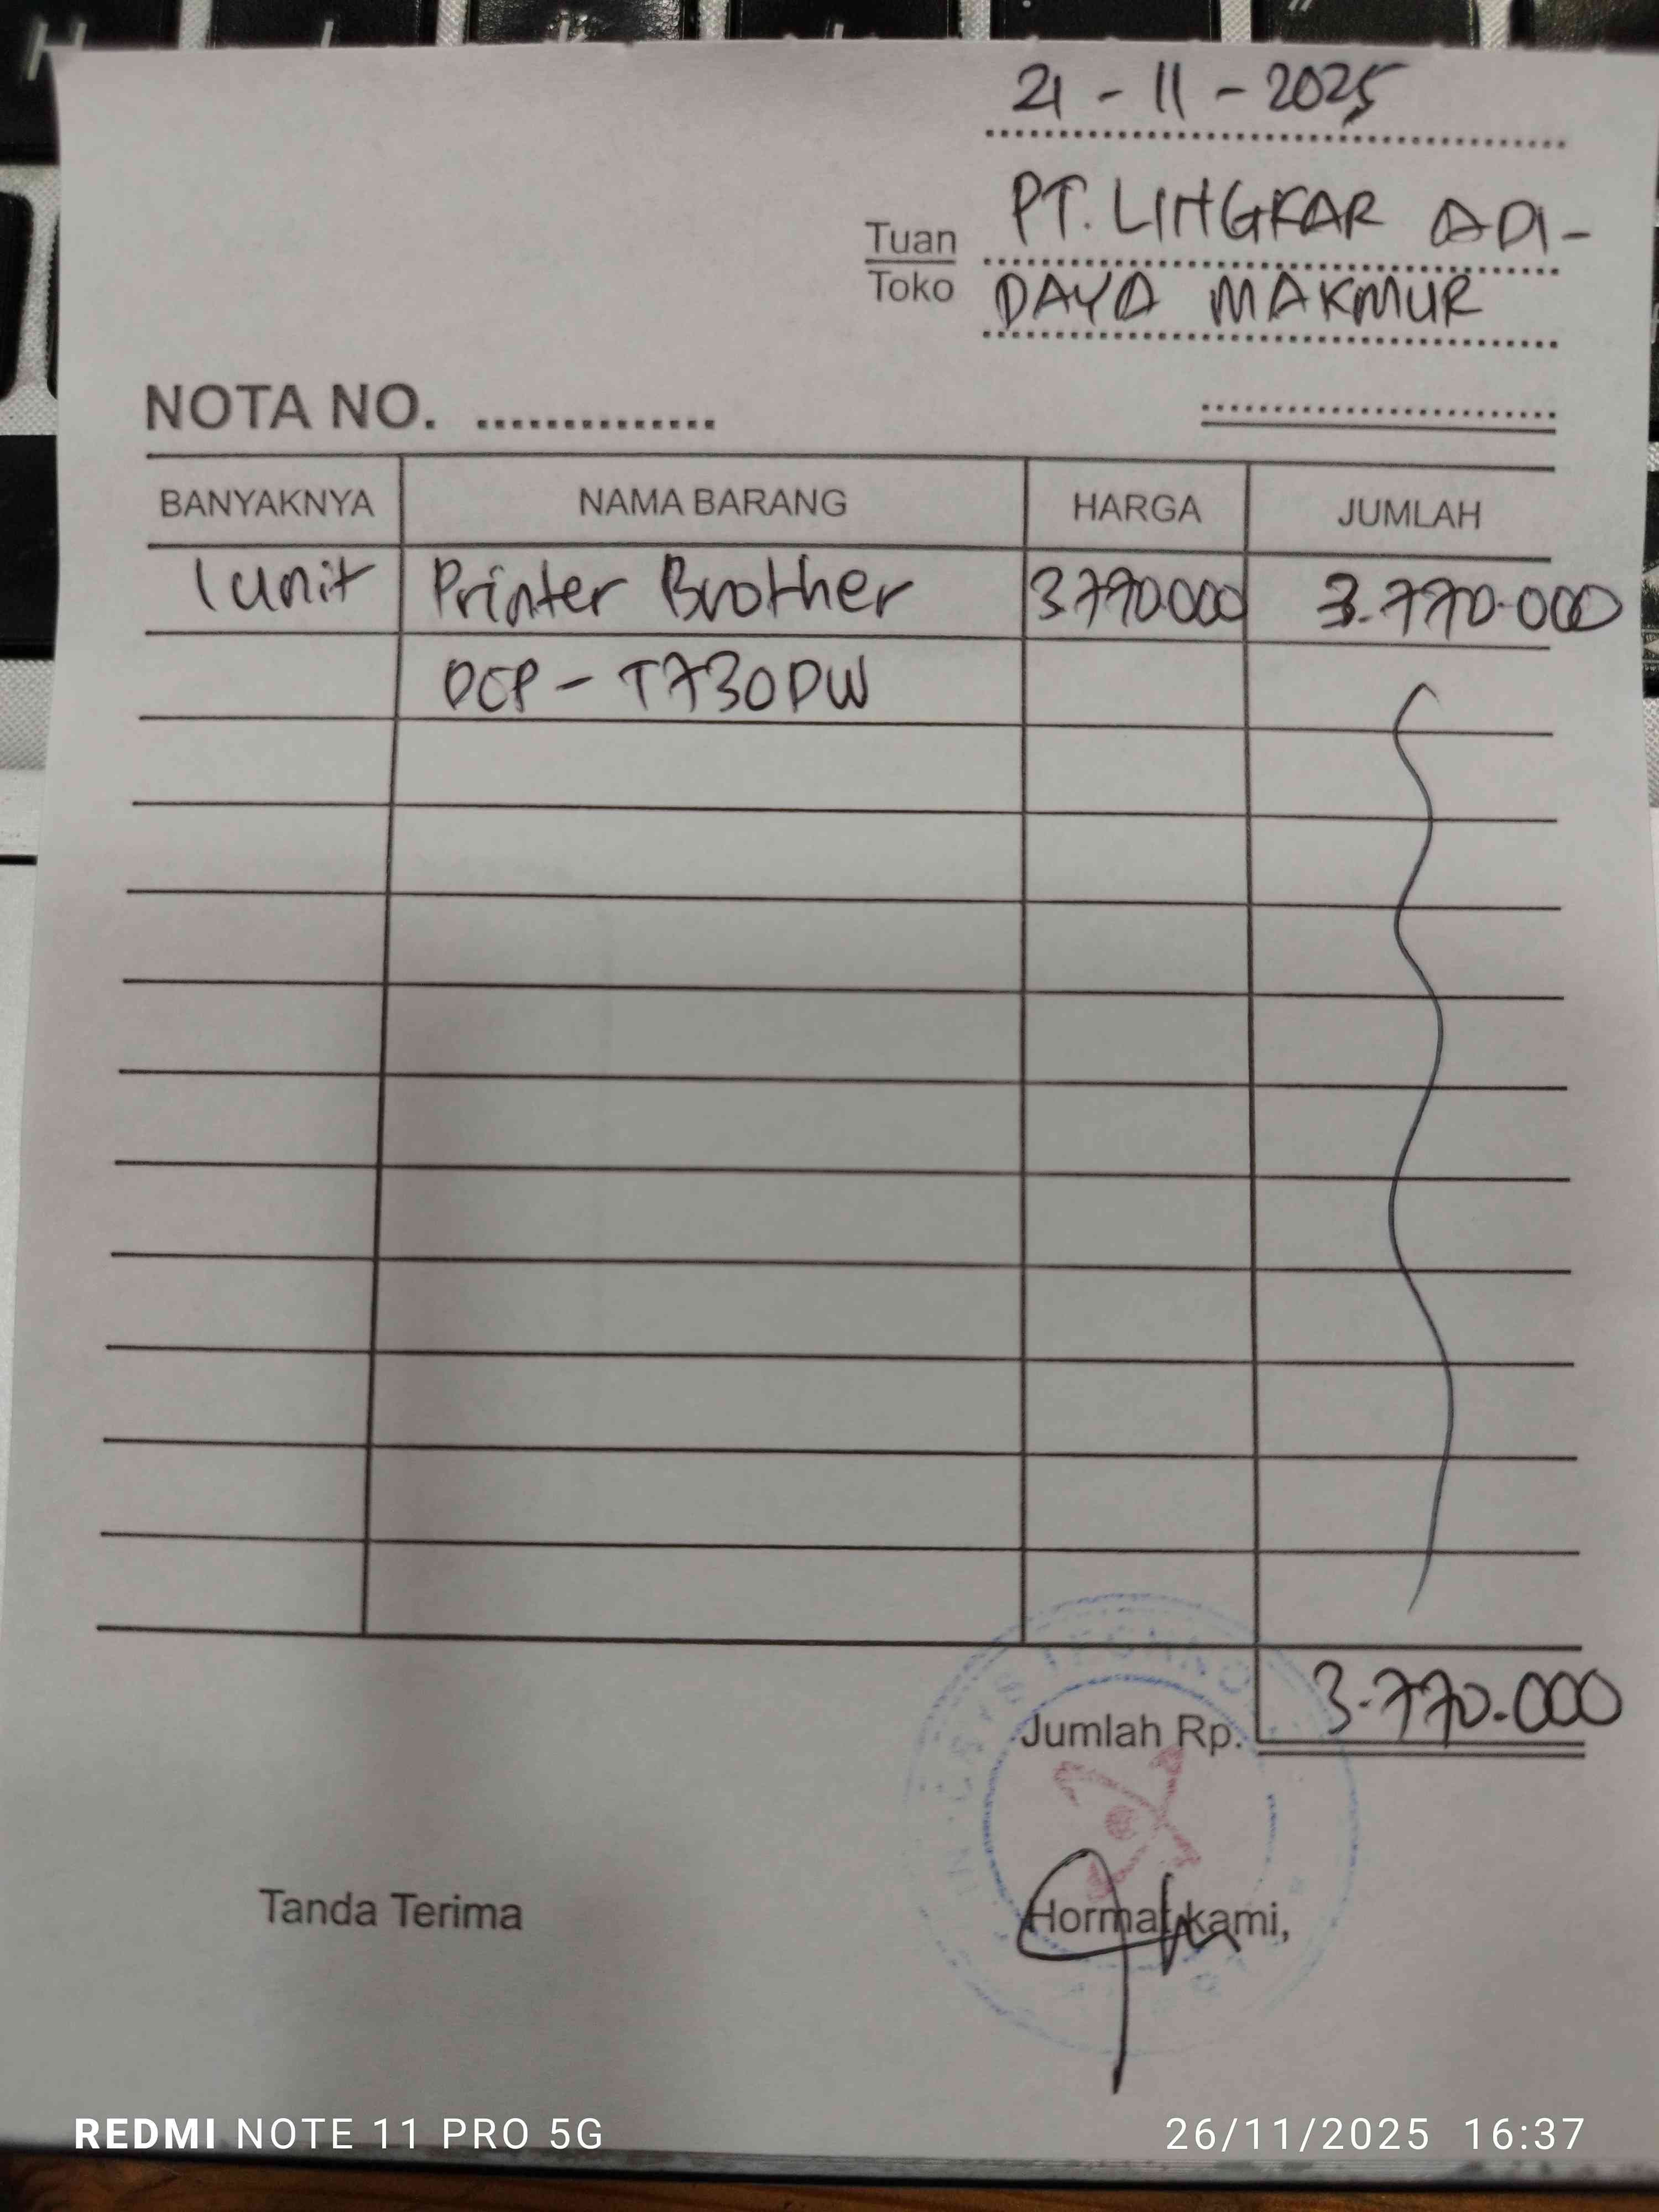 21 - 11 - 2025
Tuan PT. LINGKAR ADI-
Toko DAYA MAKMUR
NOTA NO. ..............
BANYAKNYA NAMA BARANG HARGA JUMLAH
1 unit Printer Brother 3770.000 3.770.000
DCP - T730DW
Jumlah Rp. 3.770.000
Tanda Terima Hormat kami,
REDMI NOTE 11 PRO 5G 26/11/2025 16:37